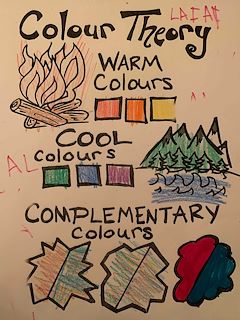 Colour Theory
WARM
Colours
COOL
Colours
AL
COMPLEMENTARY
Colours